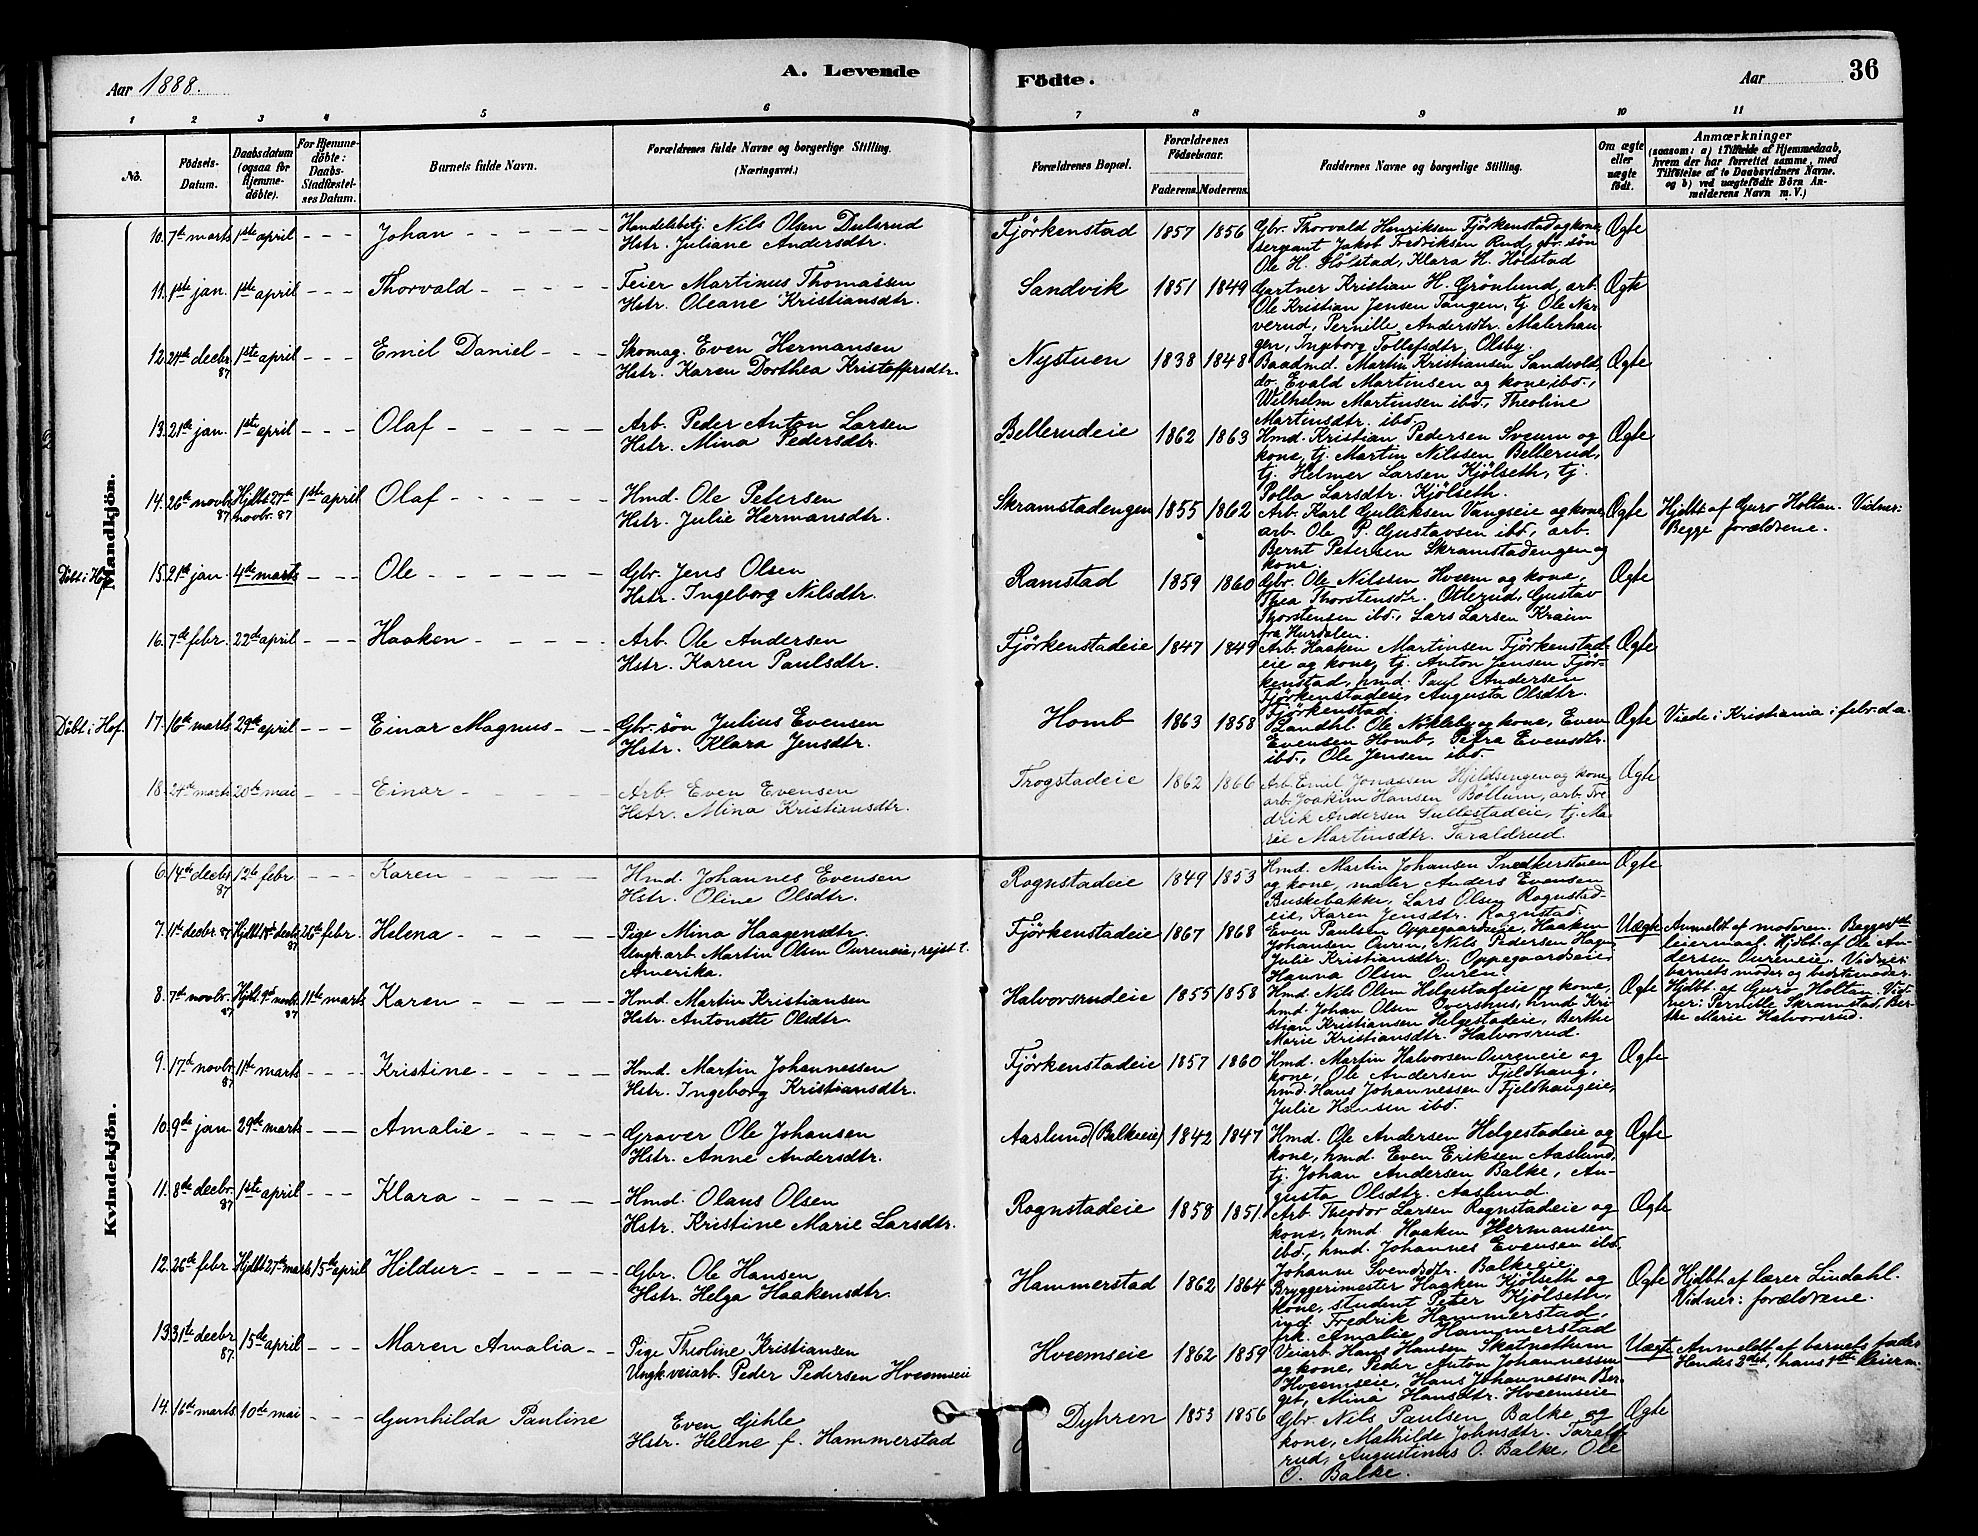 Aar 1888.
A. Levende
Födte.
Aar
36
1 2 3 4 5 6 7 8 9 10 11
No.
Födsels-Datum.
Daabsdatum (ogsaa for Hjemmedöbte).
For Hjemmedöbte: Daabs-Stadfæstelses Datum.
Barnets fulde Navn.
Forældrenes fulde Navne og borgerlige Stilling. (Næringsvei.)
Forældrenes Bopæl.
Forældrenes Födselsaar.
Faderens. Moderens.
Faddernes Navne og borgerlige Stilling.
Om ægte eller uægte födt.
Anmærkninger (saasom: a) i Tilfælde af Hjemmedaab, hvem der har forrettet samme, med Tilföielse af to Daabsvidners Navne. og b) ved uægtefödte Börn Anmelderens Navn m. V.)
Mandkjön.
10. 7de marts 1ste april - - - Johan - - - - - -
Handelsbetj. Nils Olsen Dulsrud
Hstr. Juliane Andersdtr.
Fjörkenstad 1857 1856
Gbr. Thorvald Henriksen Fjörkenstad og kone,
sergeant Jakob Fredriksen Rud, gbr. sön
Ole H. Hölstad, Klara H. Hölstad
Ægte
11. 1ste jan. 1ste april - - - Thorvald - - - - -
Feier Martinus Thomassen
Hstr. Oleane Kristiansdtr.
Sandvik 1851 1849
Gartner Kristian H. Grönlund, arb.
Ole Kristian Jensen Tangen, tj. Ole Nar
verud, Pernille Andersdtr. Malerhau
gen, Ingeborg Tollefsdtr. Olsby.
Ægte
12. 21de decbr. 87 1ste april - - - Emil Daniel - - -
Skomag. Even Hermansen
Hstr. Karen Dorthea Kristoffersdtr.
Nystuen 1838 1848
Baadmd. Martin Kristiansen Sandvold,
do. Evald Martinsen og kone ibd.,
Wilhelm Martinsen ibd., Theoline
Martinsdtr. ibd.
Ægte
13. 21de jan. 1ste april - - - Olaf - - - - - -
Arb. Peder Anton Larsen
Hstr. Mina Pedersdtr.
Bellerudeie 1862 1863
Hmd. Kristian Pedersen Sveum og
kone, tj. Martin Nilssen Bellerud,
tj. Helmer Larsen Kjölseth, tj.
Polla Larsdtr. Kjölseth.
Ægte
14. 26de novbr. 87 Hjdbt 27de novbr. 87 1ste april Olaf - - - - - -
Hmd. Ole Petersen
Hstr. Julie Hermansdtr.
Skramstadengen 1855 1862
Arb. Karl Gulliksen Vangseie og kone,
arb. Ole P. Gustavsen ibd., arb.
Bernt Petersen Skramstadengen og
kone.
Ægte
Hjdbt. af Guro Holtan. Vidner:
Begge forældrene.
Döbt i Hof
15. 21de jan 4de marts - - - Ole - - - - - -
Gbr. Jens Olsen
Hstr. Ingeborg Nilsdtr.
Ramstad 1859 1860
Gbr. Ole Nilssen Hveem og kone,
Thea Thorstensdtr. Otterud, Gustav
Thorstensen ibd., Lars Larsen Kraim
fra Hurdalen.
Ægte
16. 7de febr. 22de april - - - Haaken - - - - -
Arb. Ole Andersen
Hstr. Karen Paulsdtr.
Fjörkenstadeie 1847 1849
Arb. Haaken Martinsen Fjörkenstad-
eie og kone, tj. Anton Jensen Fjör-
kenstad, hmd. Paul Andersen
Fjörkenstadeie, Augusta Olsdtr.
Fjörkenstad.
Ægte
Döbt i Hof.
17. 16de marts 29de april - - - Einar Magnus - - -
Gbr. sön Julius Evensen
Hstr. Klara Jensdtr.
Homb 1863 1858
Landhl. Ole Nökleby og kone, Even
Evensen Homb, Petra Evensdtr.
ibd., Ole Jensen ibd.
Ægte
Viede i Kristiania i febr. d. a.
18. 24de marts 20de mai - - - Einar - - - - -
Arb. Even Evensen
Hstr. Mina Kristiansdtr.
Trogstadeie 1862 1866
Arb. Emil Jonassen Hjeldsengen og kone,
arb. Joakim Hansen Böllum, arb. Fre
drik Andersen Sullestadeie, tj. Ma
rie Martinsdtr. Taraldrud.
Ægte
Kvindekjön.
6. 14de decbr. 87 12te febr - - - Karen - - - - -
Hmd. Johannes Evensen
Hstr. Oline Olsdtr.
Rognstadeie 1849 1853
Hmd. Martin Johansen Snedkerstuen
og kone, maler Anders Evensen
Buskebakke, Lars Olsen Rognstad-
eie, Karen Jensdtr. Rognstad.
Ægte
7. 11te decbr. 87 Hjdbt 18de decbr. 87 26de febr. Helena - - - - -
Pige Mina Haagensdtr.
Ungk. arb. Martin Olsen Oureneie, rejst t.
Amerika.
Fjörkenstadeie 1867 1868
Even Paulsen Oppegaardseie, Haaken
Johansen Ouren, Nils Pedersen Hagen
Julie Kristiansdtr. Oppegaardseie,
Hanna Olsen Ouren.
Uægte
Anmeldt af moderen. Begges 1ste
leiermaal. Hjdbt. af Ole An-
dersen Oureneie. Vidner:
barnets moder og bedstemoder.
8. 7de novbr. 87 Hjdbt. 9de novbr. 87 11te marts Karen - - - - -
Hmd. Martin Kristiansen
Hstr. Antonette Olsdtr.
Halvorsrudeie 1855 1858
Hmd. Nils Olsen Helgestadeie og kone,
hmd. Johan Olsen Övershus, hmd Kri
stian Kristiansen Helgestadeie, Berthe
Marie Kristiansdtr. Halvorsrud.
Ægte
Hjdbt. af Guro Holtan. Vid-
ner: Pernille Skramstad, Ber-
the Marie Halvorsrud.
9. 17de novbr. 87 11te marts - - - Kristine - - - - -
Hmd. Martin Johannessen
Hstr. Ingeborg Kristiansdtr.
Fjörkenstadeie 1857 1860
Hmd. Martin Halvorsen Oureneie og
kone, Ole Andersen Fjeldhaug,
hmd. Hans Johannessen Fjeldhaugeie,
Julie Hansen ibd.
Ægte
10. 9de jan 29de marts - - - Amalie - - - - -
Graver Ole Johansen
Hstr. Anne Andersdtr.
Aaslund (Balkeeie) 1842 1847
Hmd. Ole Andersen Helgestadeie og
kone, hmd Even Eriksen Aaslund,
tj. Johan Andersen Balke, Au-
gusta Olsdtr. Aaslund.
Ægte
11. 8de decbr. 87 1ste april - - - Klara - - - - -
Hmd. Olaus Olsen
Hstr. Kristine Marie Larsdtr.
Rognstadeie 1858 1851
Arb. Theodor Larsen Rognstadeie og
kone, hmd. Haaken Hermansen
ibd., hmd. Johannes Evensen ibd.
Johanne Svendsdtr. Balkeeie.
Ægte
12. 26de febr. Hjdbt 27de marts 15de april Hildur - - - - -
Gbr. Ole Hansen
Hstr. Helga Haakensdtr.
Hammerstad 1862 1864
Bryggerimester Haaken Kjölseth og
kone, student Peter Kjölseth,
ind. Fredrik Hammerstad,
frk. Amalie Hammerstad
Ægte
Hjdbt. af lærer Lindahl.
Vidner: forældrene.
13. 31te decbr 87. 15de april - - - Maren Amalia - -
Pige Theoline Kristiansen
Ungk. veiarb. Peder Pedersen Hveemseie
Hveemseie 1862 1859
Veiarb. Hans Hansen Skatnettum
og kone, Peder Anton Johannessen
Hveemseie, Hans Johannessen Ber-
get, Mina Hansdtr. Hveemseie
Uægte
Anmeldt af barnets fader
Hendes 3die, hans 1ste leierm.
14. 16de marts. 10de mai - - - Gunhilda Pauline
Even Gihle
Hstr. Helene f. Hammerstad
Dyhren 1853 1856
Gbr. Nils Paulsen Balke og
kone, Mathilde Johnsdtr. Tarald
rud, Augustinus O. Balke, Ole
O. Balke.
Ægte